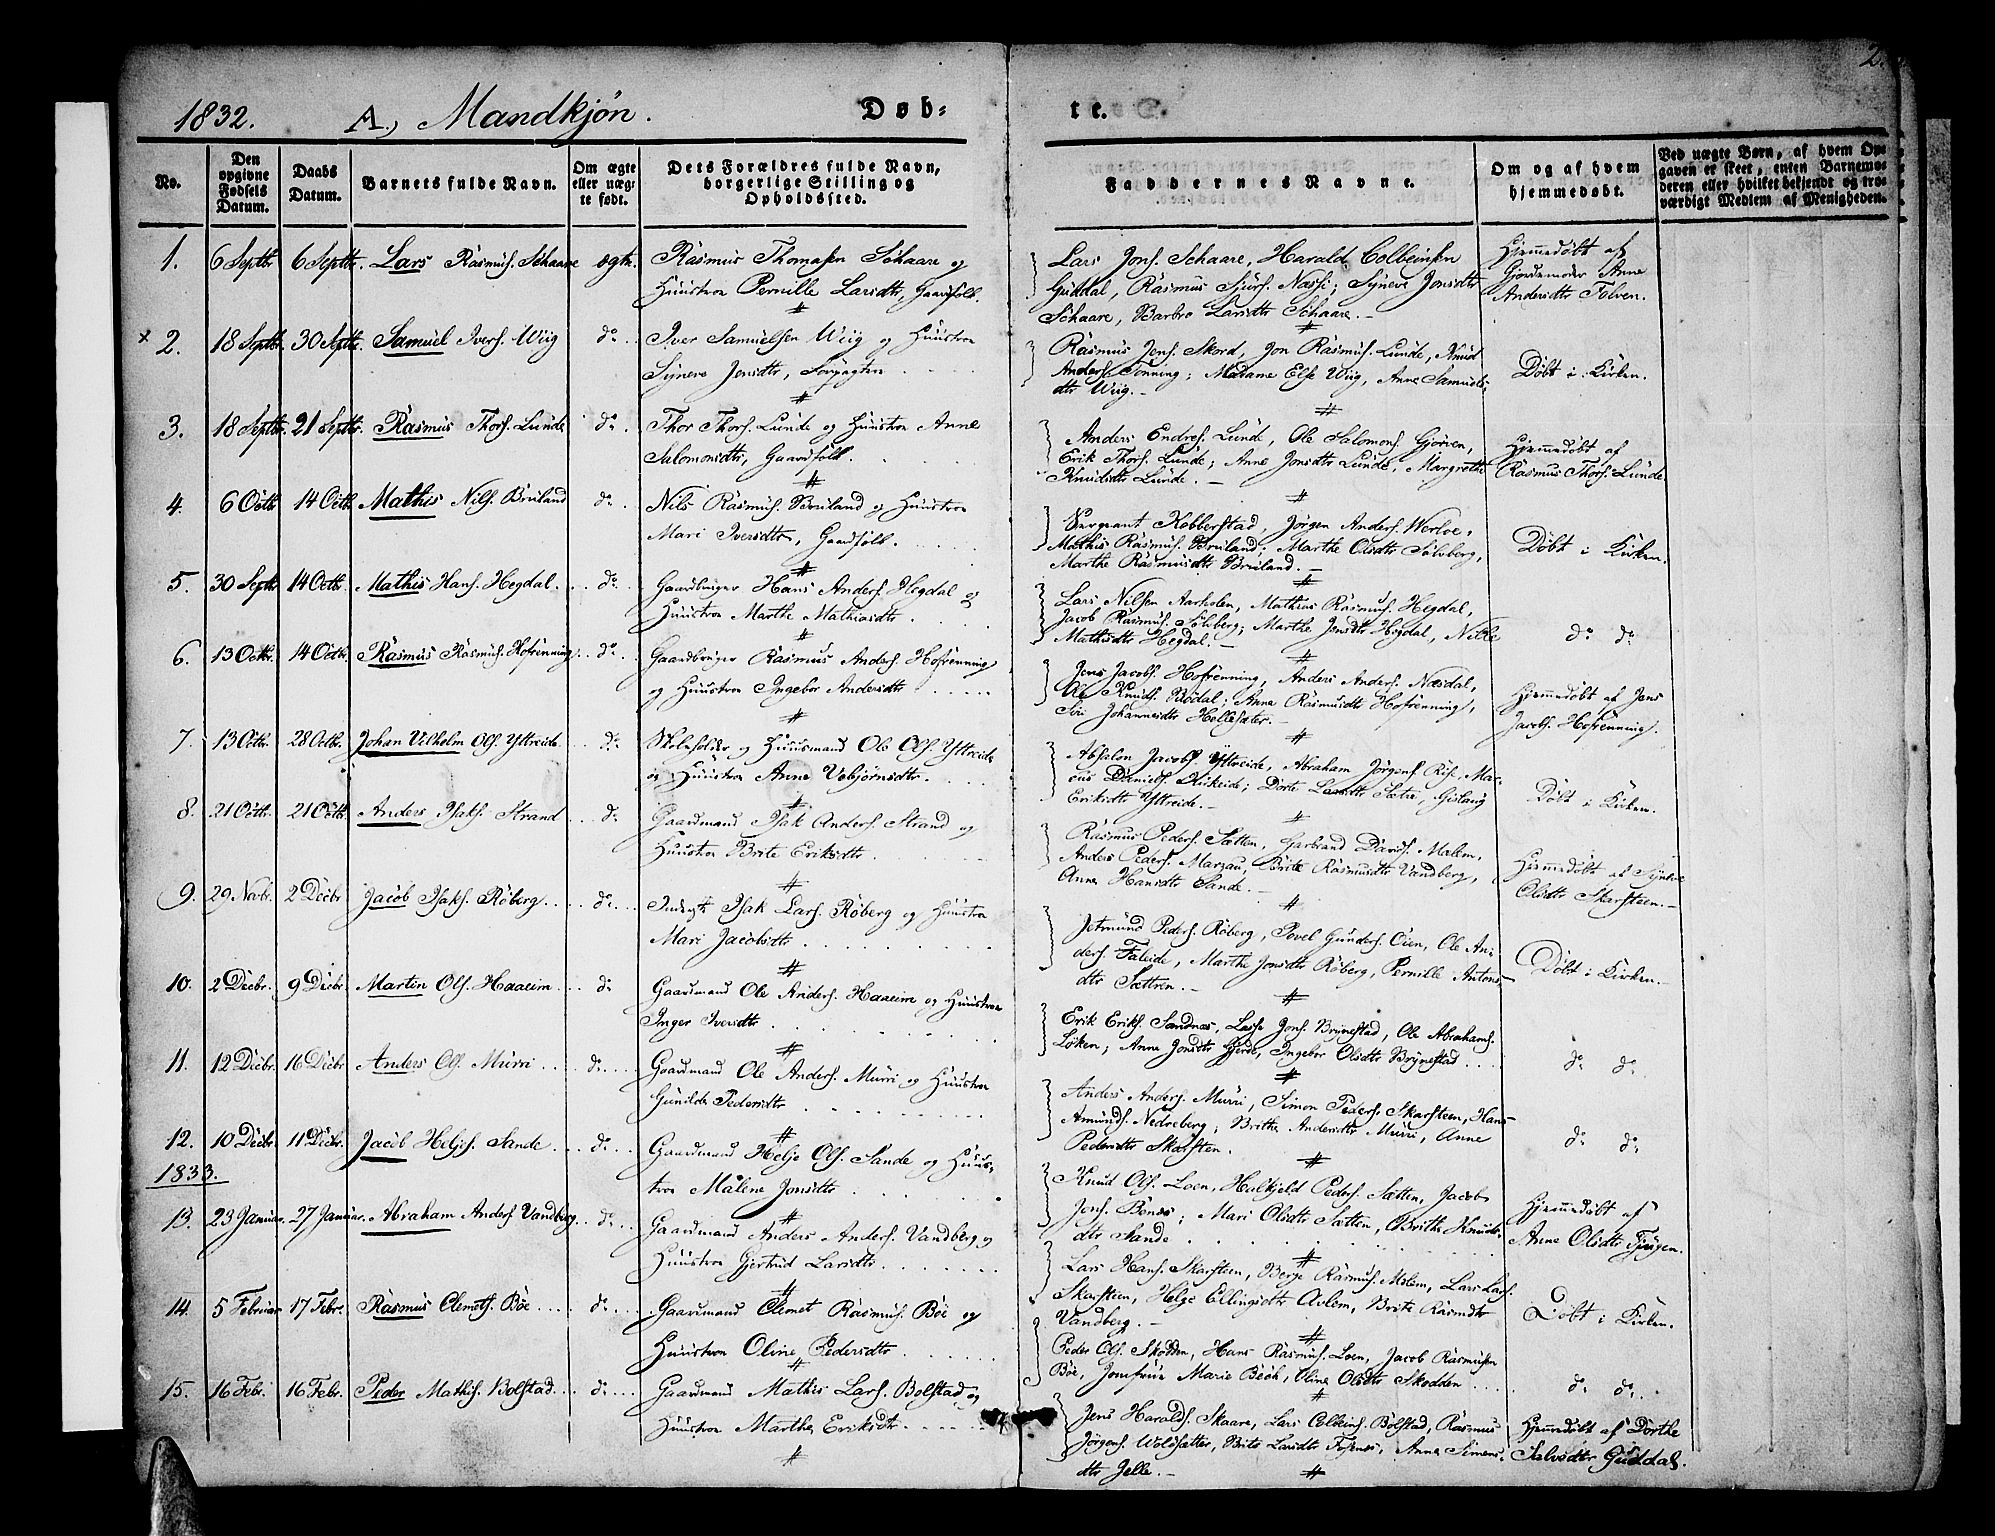 2.
1832. A., Mandkjøn. Døb- te.
No.
Den opgivne Fødsels Datum.
Daabs Datum.
Barnets fulde Navn.
Om ægte eller uægte født.
Dets Forældres fulde Navn, borgerlige Stilling og Opholdssted.
Faddernes Navne.
Om og af hvem hjemmedøbt.
Ved uægte Børn, af hvem Opgaven er skeet, enten Barnemoderen eller hvilket bekjendt og troværdigt Medlem af Menigheden.
1. 6 Septbr 6 Septbr. Lars Rasmus. Schaare ægte.
Rasmus Thomasen Schaare og
Huustroe Pernille Larsdtr, Gaardfolk.
Lars Jons. Schaare, Harald Colbeinsen
Guddal, Rasmus Sjurs. Nasse; Syneve Jonsdtr
Schaare, Barbro Larsdtr Schaare.
Hjemmedøbt af
Gjordemoder Anne
Andersdtr Tolven.
x 2. 18 Septbr. 30 Septbr. Samuel Ivers. Wiig do
Iver Samuelsen Wiig og Huustroe
Syneve Jensdtr,
Rasmus Jens. Skord, Jon Rasmus. Lunde, Knud
Anders. Tonning; Madame Else Wiig, Anne Samuels-
dtr Wiig.
Døbt i Kirken.
3. 18 Septbr. 21 Septbr. Rasmus Thors. Lunde do
Thor Thors. Lunde og Huustroe Anne
Salomonsdtr, Gaardfolk.
Anders Endres. Lunde, Ole Salomons. Gjørven,
Erik Thors. Lunde; Anne Jonsdtr Lunde, Margrethe
Knudsdtr Lunde.
Hjemmedøbt af
Rasmus Thors. Lunde.
4. 6 Octb. 14 Octb. Mathis Nils. Bruland do
Nils Rasmus. Bruland og Huustroe
Mari Iversdtr, Gaardfolk.
Sergeant Kobberstad, Jørgen Anders. Werlve,
Mathis Rasmus. Bruland; Marthe Olsdtr Sølvberg,
Marthe Rasmusdtr Bruland.
Døbt i Kirken.
5. 30 Septb. 14 Octbr. Mathis Hans. Hegdal do
Gaardbruger Hans Anders. Hegdal og
Huustroe Marthe Mathiasdtr
Lars Nilsen Aarholen, Mathias Rasmus. Hegdal,
Jacob Rasmus. Sølvberg; Marthe Jensdtr Hegdal,
Mathisdtr Hegdal.
do do
6. 13 Octbr. 14 Octbr. Rasmus Rasmus. Hofrenning do
Gaardbruger Rasmus Anders. Hofrenning
og Huustroe Ingebor Andersdtr
Jens Jacobs. Hofrenning, Anders Anders. Næsdal,
Ole Knuds. Bødal; Anne Rasmusdtr Hofrenning,
Siri Johannesdtr Hellesæter.
Hjemmedøbt af Jens
Jacobs. Hofrenning.
7. 13 Octbr. 28 Octbr. Johan Vilhelm Ols. Yttreide do
Skoleholder og Huusmand Ole Ols. Yttreide
og Huustroe Anne Vebjørnsdtr.
Absalon Jacobs. Yttreide, Abraham Jørgens. Riis, Mar-
cus Daniels. ; Dorte Larsdtr Sætre, Gislaug
Eriksdtr Yttreide.
Døbt i Kirken.
8. 21 Octbr. 21 Octbr. Anders Isaks. Strand do
Gaardmand Isak Anders. Strand og
Huustroe Brite Eriksdtr.
Rasmus Peders. Sætten, Garbrand Davids. Malem,
Anders Peders. Marzau, Brite Rasmusdtr Vandberg,
Anne Hansdtr Sande.
Hjemmedøbt af Syneve
Olsdtr Skarsteen.
9. 29 Novbr. 2 Decbr Jacob Isaks. Røberg do
Isak Lars. Røberg og Huustroe
Mari Jacobsdtr
Jetmund Peders. Røberg, Povel Gunders. Öien, Ole An-
ders. Faleide, Marthe Jonsdtr Röberg, Pernille Antons-
dtr Sættren.
Døbt i Kirken.
10. 2 Decbr. 9 Decbr Martin Ols. Haaeim do
Gaardmand Ole Anders. Haaeim og Huustroe
Inger Iversdtr
Erik Eriks. Sandnæs, Lasse Jons. Brynestad, Ole Abrahams.
Løken; Anne Jonsdtr Gjerde, Ingebor Olsdtr Brynestad
do do
11. 12 Decbr. 16 Decbr Anders Ols. Murri do
Gaardmand Ole Anders. Murri og Huustroe
Gunilde Pedersdtr
Anders Anders. Murri, Simon Peders. Skarsteen, Hans
Amunds. Nedreberg; Brithe Andersdtr Murri, Anne
Pedersdtr Skarsteen.
do do
12. 10 Decbr. 11 Decbr. Jacob Heljes. Sande do
Gaardmand Helje Ols. Sande og Huus-
troe Malene Jonsdtr
Knud Ols. Loen, Hulkjeld Peders. Sætten, Jacob
Jens. Bønes; Mari Olsdtr Sætten, Brithe Knuds-
dtr Sande
Hjemmedøbt af
Anne Olsdtr Tjugen.
1833.
13. 23 Januar. 27 Januar. Abraham Anders. Vandberg do
Gaardmand Anders Anders. Vandberg og
Huustroe Gjertrud Larsdtr
Lars Hans. Skarsteen, Berge Rasmus. Melem, Lars Lars.
Skarsteen, Helge Ellingsdtr Avlem, Brite Rasmdtr
Vandberg.
Døbt i Kirken.
14. 5 Februar 17 Febr. Rasmus Clemets. Böe do
Gaardmand Clemet Rasmus. Böe og
Huustroe Oline Pedersdtr
Peder Ols. Skodden, Hans Rasmus. Loen, Jacob Rasmusen
Böe, Jomfrue Marie Bech, Oline Olsdtr Skodden
do do
15. 16 Febr. 16 Febr. Peder Mathis. Bolstad do
Gaardmand Mathis Lars. Bolstad og
Huustroe Marthe Eriksdtr
Jens Haralds. Skaare, Lars Colbeins. Bolstad, Rasmus
Jørgens. Woldsætter, Brite Larsdtr Fosenes, Anne Simens-
dtr Jelle.
Hjemmedøbt af Dorthe
Salvesdtr Guddal.